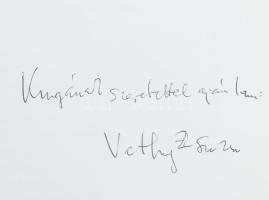 Kingának szeretettel ajánlom:
Vathy Zsuzsa